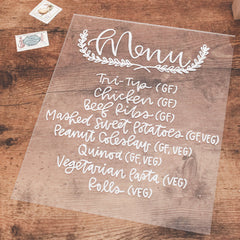 Menu
Tri-Tip (GF)
Chicken (GF)
Beef Ribs (GF)
Mashed Sweet Potatoes (GF, VEG)
Peanut Coleslaw (GF, VEG)
Quinoa (GF, VEG)
Vegetarian Pasta (VEG)
Rolls (VEG)